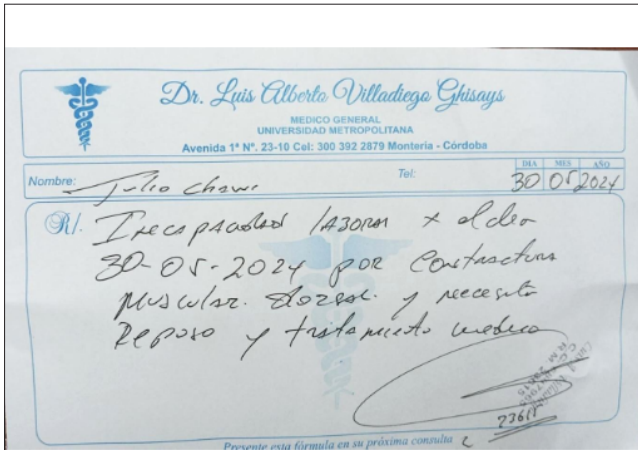 Dr. Luis Alberto Villadiego Ghisays
MEDICO GENERAL
UNIVERSIDAD METROPOLITANA
Avenida 1ª Nº. 23-10 Cel: 300 392 2879 Montería - Córdoba
Nombre: Julio Tel: DIA MES AÑO
30 05 2024
R/. Incapacidad laboral x el dia
30-05-2024 por Contractura
Muscular. Dorsal. y necesita
Reposo y tratamiento medico
23615
Presente esta fórmula en su próxima consulta